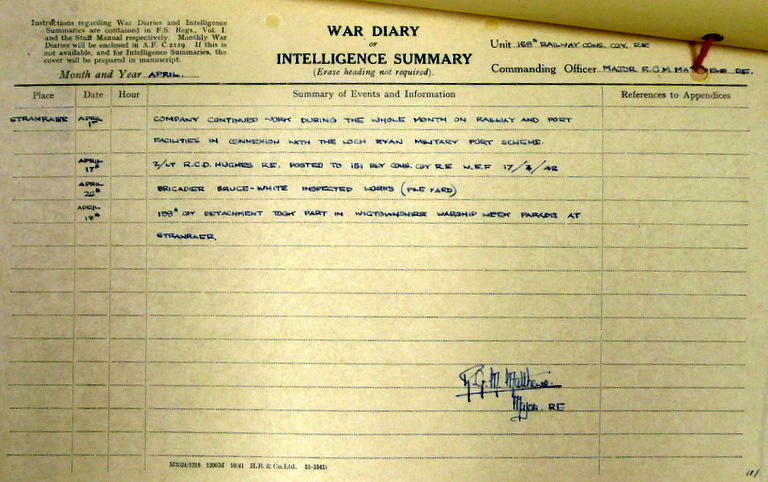 Instructions regarding War Diaries and Intelligence
Summaries are contained in F.S. Regs., Vol. I.
and the Staff Manual respectively. Monthly War
Diaries will be enclosed in A.F. C.2119. If this is
not available, and for Intelligence Summaries, the
cover will be prepared in manuscript.
Month and Year APRIL.
WAR DIARY
OR
INTELLIGENCE SUMMARY
(Erase heading not required).
Unit 158th RAILWAY CONS. COY. RE
Commanding Officer MAJOR R.G.M. RE.
Place Date Hour Summary of Events and Information References to Appendices
STRANRAER APRIL 1st COMPANY CONTINUED WORK DURING THE WHOLE MONTH ON RAILWAY AND PORT
FACILITIES IN CONNEXION WITH THE LOCH RYAN MILITARY PORT SCHEME.
APRIL 17th 2/LT R.C.D. HUGHES R.E. POSTED TO 151 RLY CONS. COY R.E W.E.F 17/4/42
APRIL BRIGADIER BRUCE-WHITE INSPECTED WORKS (PILE YARD)
APRIL 18th 158th COY DETACHMENT TOOK PART IN WIGTOWNSHIRE WARSHIP WEEK PARADE AT
STRANRAER.
R.G.M. Matthews
Major. RE
M3524/1218 1200M 10/41 H.B. & Co.Ltd. 51-1541)